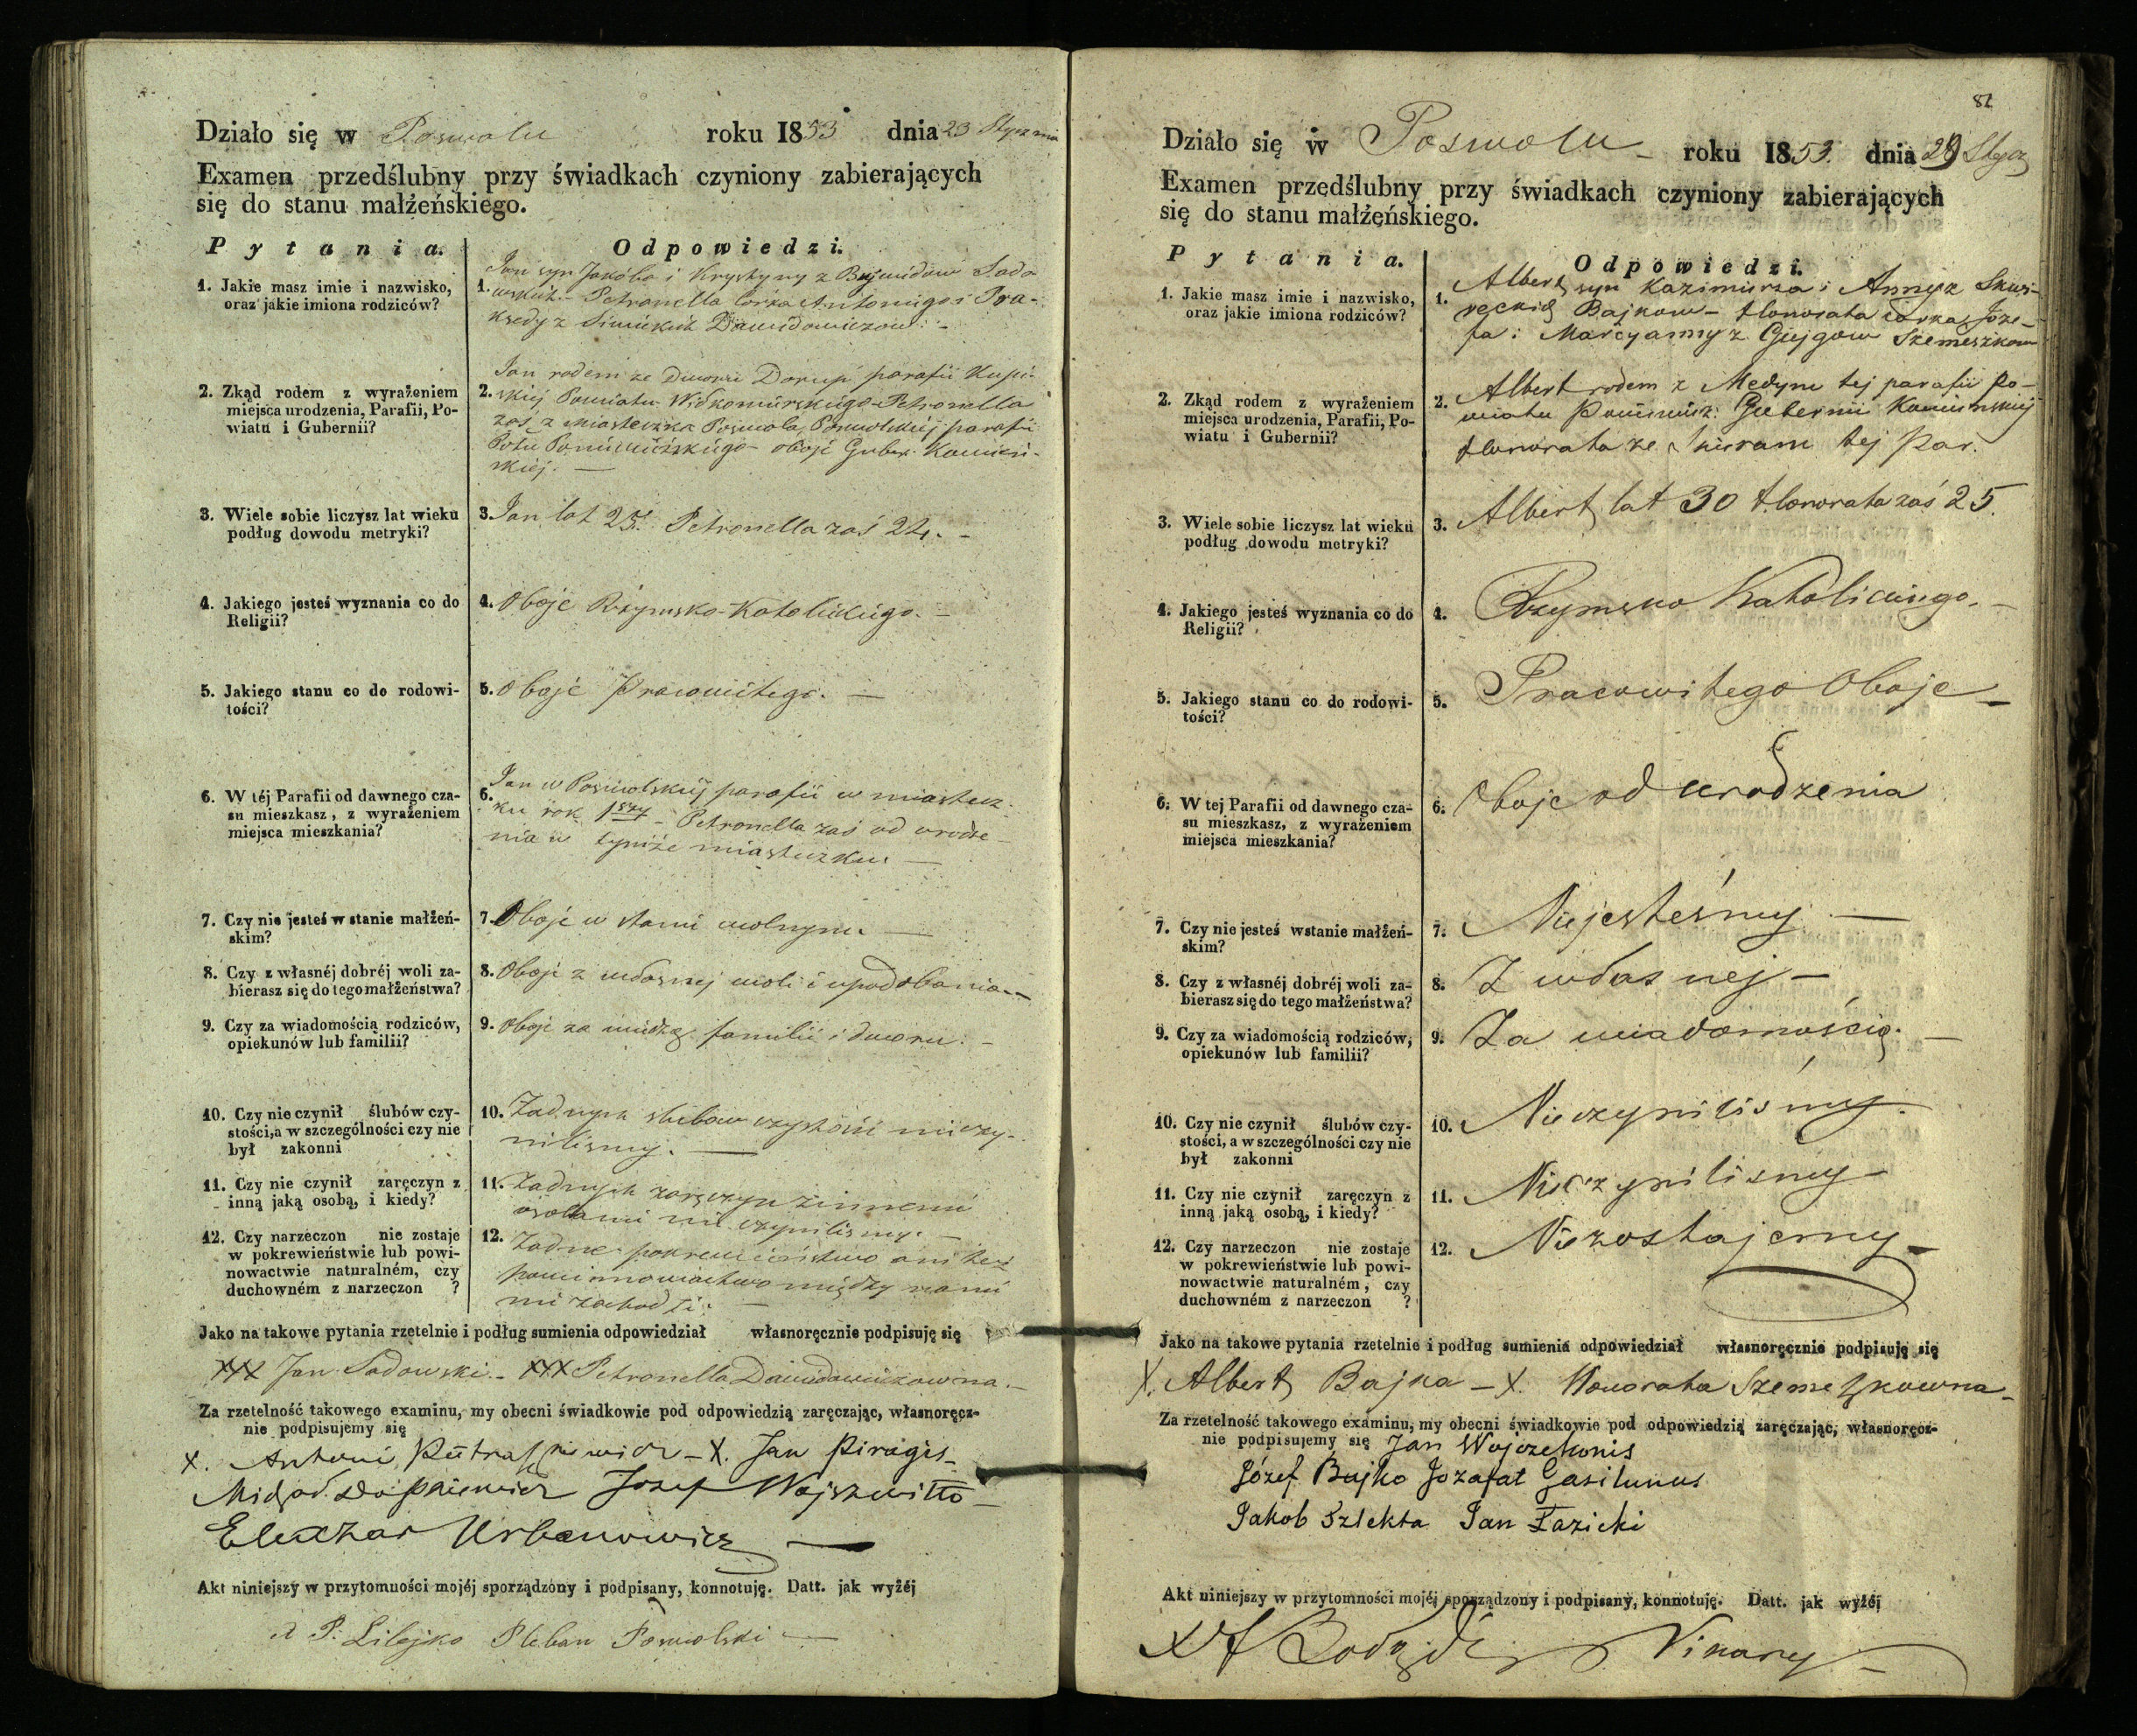 Działo się w Poswolu roku 1853 dnia 23 Stycznia
Examen przedślubny przy świadkach czyniony zabierających
się do stanu małżeńskiego.
Pytania. Odpowiedzi.
1. Jakie masz imie i nazwisko,
oraz jakie imiona rodziców?
1. Jan syn Jakóba i Krystyny z Bujwidow Sado
wskich. – Petronella Corka Antoniego i Pra-
ksedy z Dawidowiczow. –
2. Zkąd rodem z wyrażeniem
miejsca urodzenia, Parafii, Po-
wiatu i Gubernii?
2. Jan rodem ze Dworu parafii Kupi-
skiej Powiatu Wiłkomirskiego – Petronella
zaś z Miasteczka Poswola, Poswolskiej parafii
Potu Poniewiezskiego – oboje Guber. Kowień-
skiej. –
3. Wiele sobie liczysz lat wieku
podług dowodu metryki?
3. Jan lat 25. Petronella zaś 24. –
4. Jakiego jesteś wyznania co do
Religii?
4. Oboje Rzymsko-Katolickiego. –
5. Jakiego stanu co do rodowi-
tości?
5. Oboje Pracowitego. –
6. W téj Parafii od dawnego cza-
su mieszkasz, z wyrażeniem
miejsca mieszkania?
6. Jan w Poswolskiej parafii w miastecz-
ku rok 1szy – Petronella zaś od urodze-
nia w tymże miasteczku. –
7. Czy nie jesteś w stanie małżeń-
skim?
7. Oboje w stanie wolnym. –
8. Czy z własnéj dobréj woli za-
bierasz się do tego małżeństwa?
8. Oboje z własnej woli i upodobania. –
9. Czy za wiadomością rodziców,
opiekunów lub familii?
9. Oboje za wiedzą familii i dworu. –
10. Czy nie czynił ślubów czy-
stości, a w szczególności czy nie
był zakonni
10. Żadnych slubow czystości nie czy-
nilismy. –
11. Czy nie czynił zaręczyn z
inną jaką osobą, i kiedy?
11. Żadnych zaręczyn z innemi
osobami nie czynilismy. –
12. Czy narzeczon nie zostaje
w pokrewieństwie lub powi-
nowactwie naturalném, czy
duchowném z narzeczon ?
12. Żadne pokrewieństwo ani też
powinnowactwo między nami
nie zachodzi. –
Jako na takowe pytania rzetelnie i podług sumienia odpowiedział własnoręcznie podpisuję się
XXX Jan Sadowski – XXX Petronella Dawidowiczowna. –
Za rzetelność takowego examinu, my obecni świadkowie pod odpowiedzią zaręczając, własnoręcz-
nie podpisujemy się
X. Antoni – X. Jan Piragis –
Josef Wojszwiłło –
Urbanowicz –
Akt niniejszy w przytomności mojéj sporządzony i podpisany, konnotuję. Datt. jak wyżéj
X P. Lilejko Pleban Poswolski –
81
Działo się w Poswolu – roku 1853. dnia 29 Stycz
Examen przedślubny przy świadkach czyniony zabierających
się do stanu małżeńskiego.
Pytania. Odpowiedzi.
1. Jakie masz imie i nazwisko,
oraz jakie imiona rodziców?
1. Albert syn Kazimierza i Anny z
Bajkow – Honorata corka Joze-
fa i Marcyanny z Giejgow Szemeszkow
2. Zkąd rodem z wyrażeniem
miejsca urodzenia, Parafii, Po-
wiatu i Gubernii?
2. Albert rodem z Medyn tej parafii Po-
wiatu Poniewież: Gubernii Kowienskiej
Honorata ze tej Par.
3. Wiele sobie liczysz lat wieku
podług dowodu metryki?
3. Albert lat 30 Honorata zaś 25.
4. Jakiego jesteś wyznania co do
Religii?
4. Rzymsko Katolickiego. –
5. Jakiego stanu co do rodowi-
tości?
5. Pracowitego Oboje –
6. W tej Parafii od dawnego cza-
su mieszkasz, z wyrażeniem
miejsca mieszkania?
6. Oboje od urodzenia
7. Czy nie jesteś wstanie małżeń-
skim?
7. Niejesteśmy –
8. Czy z własnéj dobréj woli za-
bierasz się do tego małżeństwa?
8. Z własnej –
9. Czy za wiadomością rodziców,
opiekunów lub familii?
9. Za wiadomością. –
10. Czy nie czynił ślubów czy-
stości, a w szczególności czy nie
był zakonni
10. Nieczyniliśmy.
11. Czy nie czynił zaręczyn z
inną jaką osobą, i kiedy?
11. Nieczynilismy –
12. Czy narzeczon nie zostaje
w pokrewieństwie lub powi-
nowactwie naturalném, czy
duchowném z narzeczon ?
12. Niezostajemy –
Jako na takowe pytania rzetelnie i podług sumienia odpowiedział własnoręcznie podpisuję się
X. Albert Bajka – X. Honorata Szemeszkowna –
Za rzetelność takowego examinu, my obecni świadkowie pod odpowiedzią zaręczając, własnoręcz-
nie podpisujemy się Jan Wojczekonis
Józef Bajko Jozafat Gasilunus
Jakob Szlekta Jan Łazicki
Akt niniejszy w przytomności mojéj sporządzony i podpisany, konnotuję. Datt. jak wyżéj
Wikary –